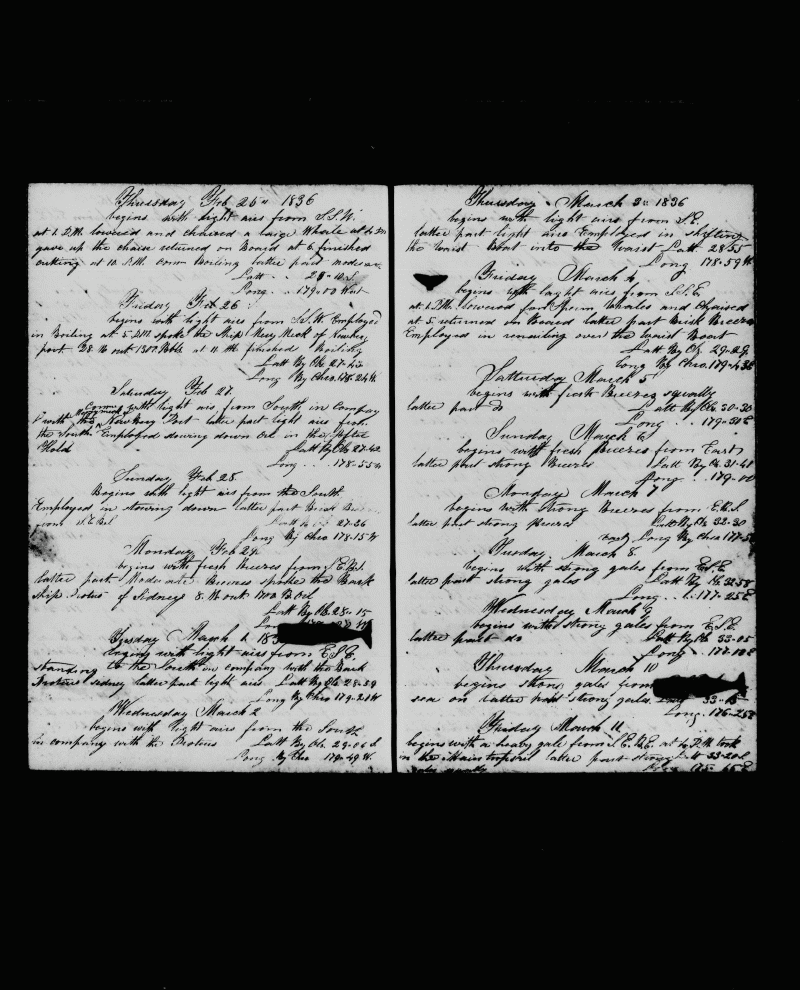 Thursday Feb 25" 1836
begins with light airs from S.S.W.
at 1 P.M. lowered and chaised a large Whale at 4 PM
gave up the chaise returned on Board at 6 finished
cutting at 10 P.M. Boiling latter part moderate
Latt 28-10 S
Long 179-00 West
Friday Feb 26
begins with light airs from S.S.W. Employed
in Boiling at 5 P.M. spoke the Ship Mery of Newbery
port 28 M out 1300 Bbls at 11 finished Boiling
Latt By Ob 27-42
Long By Chro 178-24 W
Saturday Feb 27
Comms with light airs from South in Company
with the Newbury Port latter part light airs from
the South Employed stowing down Oil in the After
Hold Latt By Ob 27-42
Long 178-55 W
Sunday Feb 28
Begins with light airs from the South
Employed in stowing down latter part Brisk
from
27-36
Long By Chro 178-15 W
Monday Feb 29
begins with fresh Breezes from
latter part Moderate Breezes spoke the Bark
Ship of Sidney 8 M out 1700 B Oil
Latt By Ob 28-15
Tuesday March 1 183
begins with light airs from E.S.E.
standing to the South in company with the Bark
sidney latter part light airs Latt By Ob 28-39
Long By Chro 179-21 W
Wednesday March 2
begins with light airs from the South
in company with the Latt By Ob 29-06 S
Long By Chro 179-49 W
Thursday March 3" 1836
begins with light airs from S.E.
latter part light airs Employed in shifting
the waist Boat into the Waist Latt 28-55
Long 178-59 W
Friday March 4
begins with light airs from S.S.E.
at 1 P.M. lowered for Sperm Whales and Chaised
at 5 returned on Board latter part Brisk Breezes
Employed in over the Waist Boat
Latt By Ob 29-29
Long By Chro 179-43 E
Satturday March 5
begins with fresh Breezes squally
latter part do Latt By Ob 30-30
Long 179-30 E
Sunday March 6
begins with fresh Breezes from East
latter part strong Breezes Latt By Ob 31-41
Long 179-00
Monday March 7
begins with strong Breezes from E.S.E.
latter part strong Breezes Latt By Ob 32-30
Long By Chro 177-5
Tuesday March 8
begins with strong gales from E.S.E
latter part strong gales Latt By Ob 32-58
Long 177-25 E
Wednesday March 9
begins with strong gales from E.S.E.
latter part do Latt By Ob 33-05
Long 177-10 E
Thursday March 10
begins strong gales from
sea on latter part strong gales 33-15
Long 176-25 E
Friday March 11
begins with a heavy gale from S.E.b.E. at 4 P.M. took
in the Main topsail latter part strong Latt 33-20 S